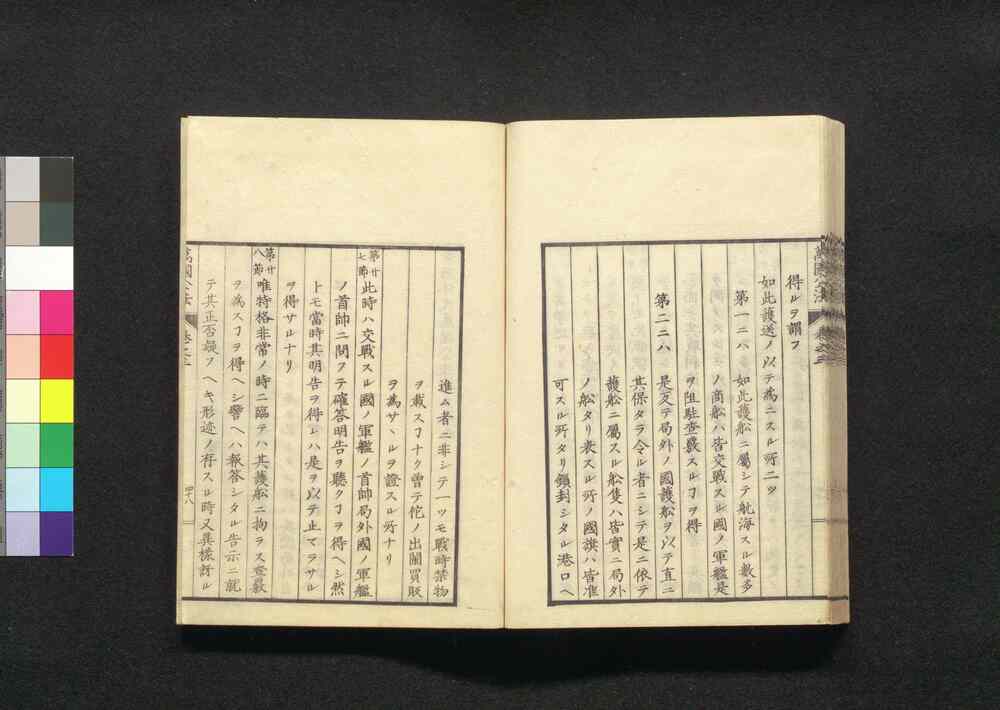 得ルヲ謂フ
如此護送ノ以テ為ニスル所ニツ
第一ニハ 如此護舩ニ屬シテ航海スル數多
ノ商舩ハ皆交戦スル國ノ軍艦是
ヲ阻駐査覈スルヿヲ得
第二ニハ 是反テ局外ノ國護舩ヲ以テ直ニ
其保タラ令ル者ニシテ是ニ依テ
護舩ニ屬スル舩隻ハ皆實ニ局外
ノ舩タリ表スル所ノ國旗ハ皆准
可スル所タリ鎖封シタル港口ヘ
進ム者ニ非シテ一ツモ戦時禁物
ヲ載スヿナク曽テ佗ノ出闌買販
ヲ為サヽルヲ證スル所ナリ
第廿七節 此時ハ交戦スル國ノ軍艦ノ首帥局外國ノ軍艦
ノ首帥ニ問フテ確答明告ヲ聽クヿヲ得ヘシ然
トモ當時其明告ヲ得レハ是ヲ以テ止マラサル
ヲ得サルナリ
第廿八節 唯特格非常ノ時ニ臨テハ其護舩ニ拘ラス査覈
ヲ為スヿヲ得ヘシ譬ヘハ報答シタル告示ニ就
テ其正否疑フヘキ形迹ノ存スル時又異樣訝ル
萬國公法 卷之三
四十八